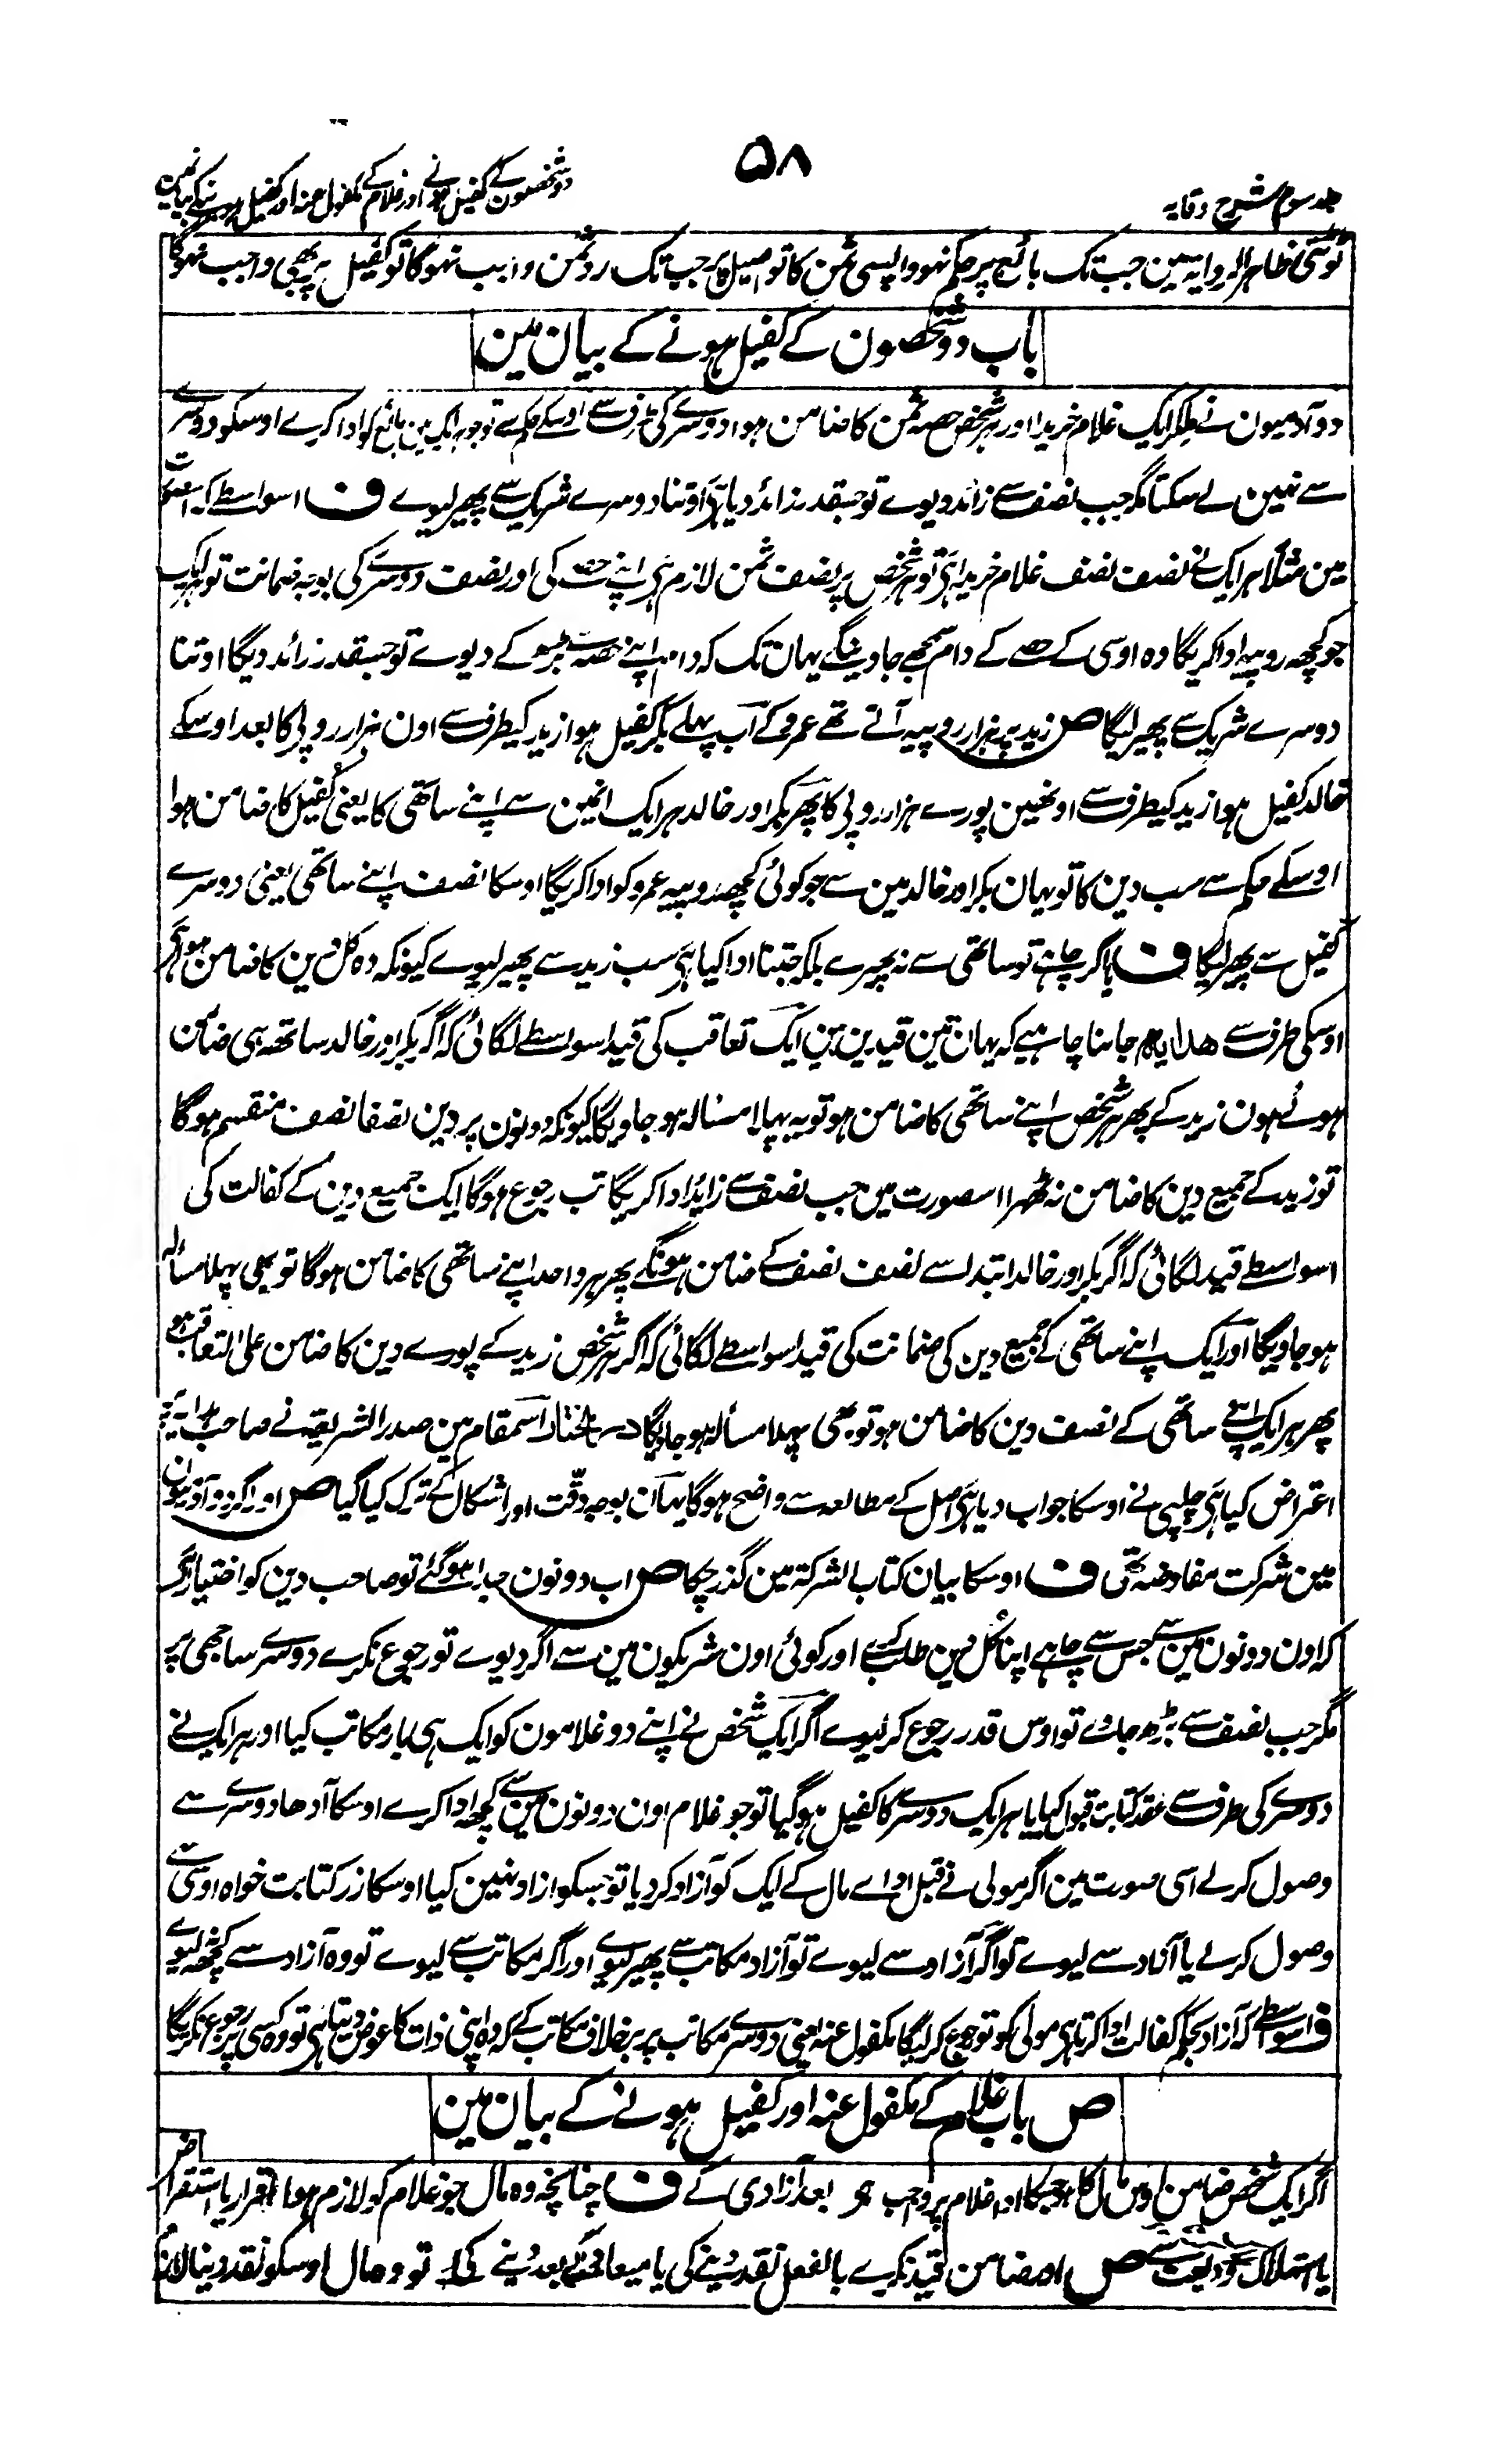 ۵۸
جلد سوم شرح وقایہ
دو شخصون کے کفیل ہونے اور غلام کے مکفول عنہ اور کفیل ہونیکے بیان مین
توشیٔ ظاہر الروایہ مین جب تک بائع پر حکم نہو واپسی ثمن کا تو اصیل پر جب تک رد ثمن واجب نہوگا تو کفیل پر بھی واجب نہوگا
باب دو شخصون کے کفیل ہونے کے بیان مین
دو آدمیون نے ملکر ایک غلام خریدا اور ہر شخص حصہ ثمن کا ضامن ہوا دوسرے کی طرف سے اوسکے حکم سے تو جو ہر ایک مین بائع کو ادا کرے اوسکو دوسرے
سے نہین لے سکتا مگر جب نصف سے زائد دیوے تو جسقدر زائد دیا ہی اوتنا دوسرے شریک سے پھیر لیوے ف اسواسطے کہ اس صورت
مین مثلاً ہر ایک نے نصف نصف غلام خریدا ہی تو ہر شخص پر نصف ثمن لازم ہی اپنے حصے کی اور نصف دوسرے کی بوجہ ضمانت تو ہر ایک
جو کچھ روپیہ ادا کریگا وہ اوسی کے حصے کے دام سمجھے جاوینگے یہان تک کہ دام اپنے حصے بھر کے دیوے تو جسقدر زائد دیگا اوتنا
دوسرے شریک سے پھیر لیگا ص زید پر ہزار روپیہ آتے تھے عمرو کے اب پہلے بکر کفیل ہوا زید کیطرف سے اون ہزار روپی کا بعد اوسکے
خالد کفیل ہوا زید کیطرف سے اونھین پورے ہزار روپی کا پھر بکر اور خالد ہر ایک انمین سے اپنے ساتھی کا یعنی کفیل کا ضامن ہوا
اوسکے حکم سے سب دین کا تو یہان بکر اور خالد مین سے جو کوئی کچھ روپیہ عمرو کو ادا کریگا اوسکا نصف اپنے ساتھی یعنی دوسرے
کفیل سے پھیر لیگا ف یا اگر چاہے تو ساتھی سے نہ پھیرے بلکہ جتنا ادا کیا ہی سب زید سے پھیر لیوے کیونکہ وہ کل دین کا ضامن ہوا ہی
اوسکی طرف سے ھدایہ جاننا چاہیے کہ یہان تین قیدین ہین ایک تعاقب کی قید اسواسطے لگائی کہ اگر بکر اور خالد ساتھہ ہی ضامن
ہوئے ہون زید کے پھر ہر شخص اپنے ساتھی کا ضامن ہو تو یہ پہلا مسئالہ ہو جاویگا کیونکہ دونون پر دین نصفا نصف منقسم ہوگا
تو زید کے جمیع دین کا ضامن نہ ٹھہرا اسصورت مین جب نصف سے زاید ادا کریگا تب رجوع ہوگا ایک جمیع دین کے کفالت کی
اسواسطے قید لگائی کہ اگر بکر اور خالد ابتدا سے نصف نصف کے ضامن ہونگے پھر ہر واحد اپنے ساتھی کا ضامن ہوگا تو بھی پہلا مسألہ
ہو جاویگا اور ایک اپنے ساتھی کے جمیع دین کی ضمانت کی قید اسواسطے لگائی کہ اگر ہر شخص زید کے پورے دین کا ضامن علی التعاقب ہو
پھر ہر ایک اپنے ساتھی کے نصف دین کا ضامن ہو تو بھی پہلا مسألہ ہو جاویگا درالمختار اسمقام مین صدر الشریعۃ نے صاحب ہدایہ پر
اعتراض کیا ہی چلپی نے اوسکا جواب دیا ہی اصل کے مطالعہ سے واضح ہوگا یہان بوجہ دقّت اور اشکال کے ترک کیا گیا ص اور اگر دو آدمیون
مین شرکت مفاوضہ تھی ف اوسکا بیان کتاب الشرکۃ مین گذر چکا ص اب دونون جدا ہوگئے تو صاحب دین کو اختیار ہی
کہ اون دونون مین سے جس سے چاہے اپنا کل دین طلب کرے اور کوئی اون شریکون مین سے اگر دیوے تو رجوع نکرے دوسرے ساجھی پر
مگر جب نصف سے بڑھ جاوے تو اوس قدر رجوع کر لیوے اگر ایک شخص نے اپنے دو غلامون کو ایک ہی بار مکاتب کیا اور ہر ایک نے
دوسرے کی طرف سے عقد کتابت قبول کیا یا ہر ایک دوسرے کا کفیل ہوگیا تو جو غلام اون دونون مین سے کچھ ادا کرے اوسکا آدھا دوسرے سے
وصول کرلے اسی صورت مین اگر مولی نے قبل ادائے مال کے ایک کو آزاد کر دیا تو جسکو ازاد نہین کیا اوسکا زر کتابت خواہ اوسی سے
وصول کرلے یا آزاد سے لیوے تو اگر آزاد سے لیوے تو آزاد مکاتب سے پھیر لیوے اور اگر مکاتب سے لیوے تو وہ آزاد سے کچھ نہ لیوے
ف اسواسطے کہ آزاد بحکم کفالت ادا کرتا ہی مولی کو تو رجوع کر لیگا مکفول عنہ یعنی دوسرے مکاتب پر برخلاف مکاتب کے کہ وہ اپنی ذات کا عوض دیتا ہی تو وہ کسی پر رجوع نکریگا
ص باب غلام کے مکفول عنہ اور کفیل ہونے کے بیان مین
اگر ایک شخص ضامن اوس مال کا ہو جسکا ادا غلام پر واجب ہو بعد آزادی کے ف چنانچہ وہ مال جو غلام کو لازم ہوا اقرار یا استقراض
یا استہلاک ودیعت سے ص اور ضامن قید نکرے بالفعل نقد دینے کی یا میعاد کے بعد دینے کی تو وہ مال اوسکو نقد دینا لازم